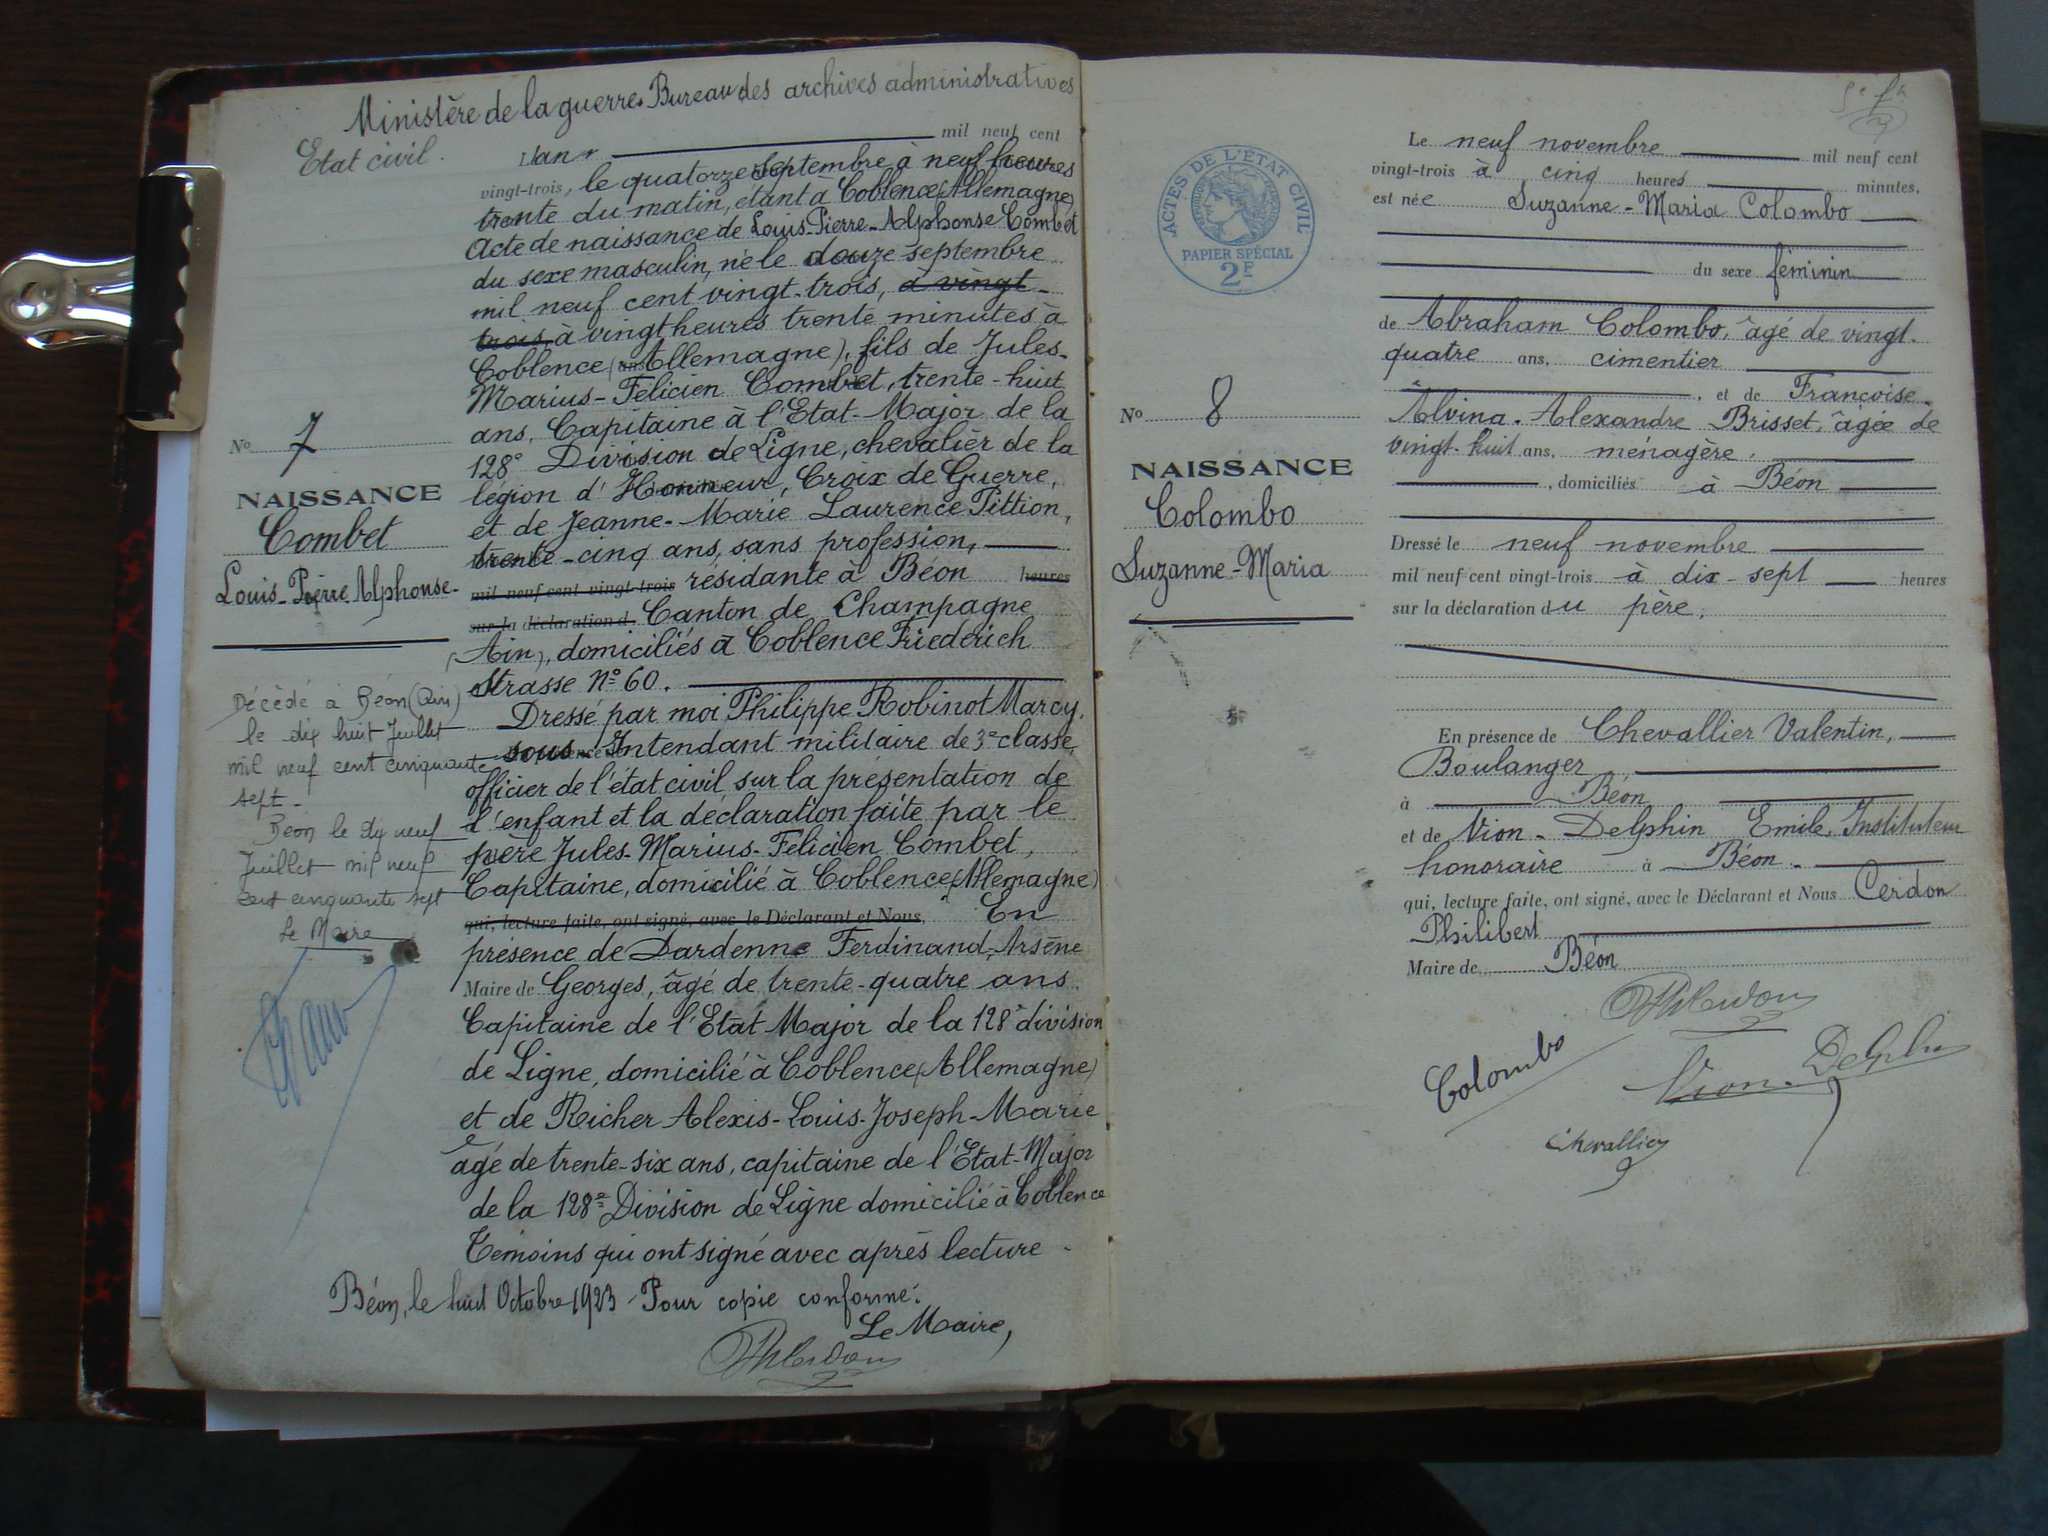 Ministère de la guerre. Bureau des archives administratives
Etat civil.
L'an mil neuf cent
vingt-trois, le quatorze septembre à neuf heures
trente du matin, étant à Coblence (Allemagne)
Acte de naissance de Louis-Pierre-Alphonse Combet
du sexe masculin, né le douze septembre
mil neuf cent vingt-trois, à vingt-
trois, à vingt heures trente minutes à
Coblence (Allemagne), fils de Jules-
Marius-Félicien Combet, trente-huit
ans, Capitaine à l'Etat-Major de la
128e Division de Ligne, chevalier de la
légion d'Honneur, Croix de Guerre,
et de Jeanne-Marie Laurence Pittion,
trente-cinq ans, sans profession,
mil neuf cent vingt-trois résidante à Béon heures
sur la déclaration d Canton de Champagne
(Ain), domiciliés à Coblence Friederich
Strasse No 60.
Dressé par moi Philippe Robinot Marcy,
sous Intendant militaire de 3e classe,
officier de l'état civil, sur la présentation de
l'enfant et la déclaration faite par le
père Jules-Marius-Félicien Combet,
Capitaine, domicilié à Coblence (Allemagne)
qui, lecture faite, ont signé, avec le Déclarant et Nous, En
présence de Dardenne Ferdinand, Arsène
Maire de Georges, âgé de trente-quatre ans
Capitaine de l'Etat Major de la 128e division
de Ligne, domicilié à Coblence (Allemagne)
et de Richer Alexis-Louis-Joseph-Marie
âgé de trente-six ans, capitaine de l'Etat-Major
de la 128e Division de Ligne domicilié à Coblence
Témoins qui ont signé avec après lecture.
Béon, le huit Octobre 1923 - Pour copie conforme:
Le Maire,
No 7
NAISSANCE
Combet
Louis-Pierre Alphonse-
Décédé à Béon (Ain)
le dix huit Juillet
mil neuf cent cinquante
sept-
Béon le dix neuf
Juillet mil neuf
cent cinquante sept
Le Maire
ACTES DE L'ÉTAT CIVIL
PAPIER SPÉCIAL
2F
No 8
NAISSANCE
Colombo
Suzanne-Maria
Le neuf novembre mil neuf cent
vingt-trois à cinq heures minutes,
est née Suzanne-Maria Colombo
du sexe féminin
de Abraham Colombo, âgé de vingt-
quatre ans, cimentier
, et de Françoise-
Alvina-Alexandre Brisset, âgée de
vingt-huit ans, ménagère,
, domiciliés à Béon
Dressé le neuf novembre
mil neuf cent vingt-trois à dix-sept heures
sur la déclaration du père,
En présence de Chevallier Valentin,
Boulanger
à Béon
et de Vion-Delphin Emile, Instituteur
honoraire à Béon
qui, lecture faite, ont signé, avec le Déclarant et Nous Cerdon
Philibert
Maire de Béon
Colombo
Vion-Delphin
Chevallier